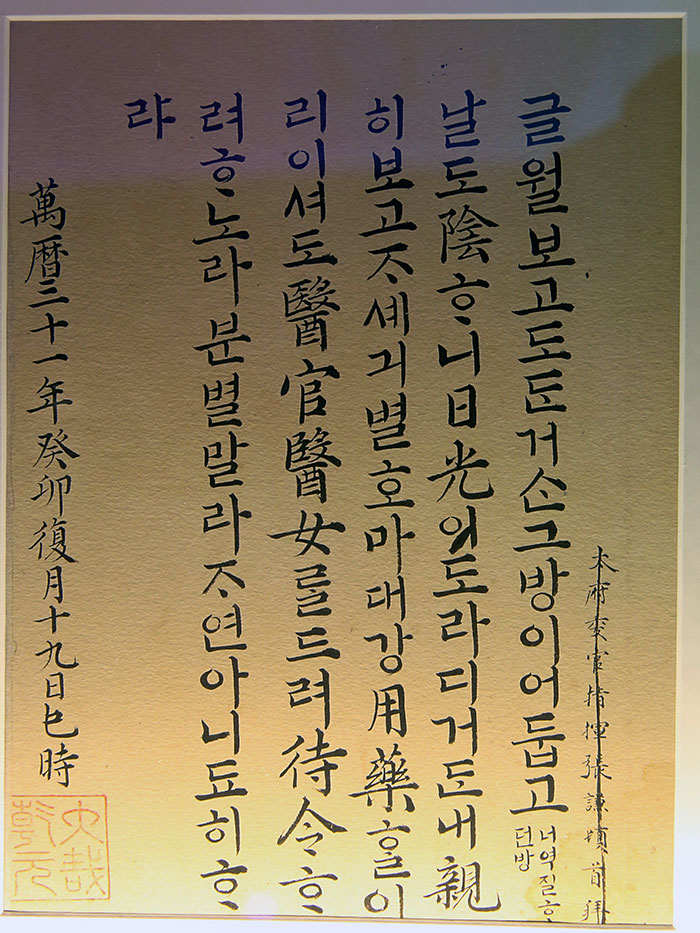 本府委官指揮張謙頓首拜
글월보고도ᄃᆞᆫ거ᄉᆞᆫ그방이어둡고
너역질ᄒᆞ
던방
날도陰ᄒᆞ니日光이도라디거ᄃᆞᆫ내親
히보고ᄌᆞ셰긔별호마대강用藥ᄒᆞᆯ이
리이셔도醫官醫女ᄅᆞᆯ드려待令ᄒᆞ
려ᄒᆞ노라분별말라ᄌᆞ연아니됴히ᄒᆞ
랴
萬曆三十一年癸卯復月十九日巳時
大哉
乾元